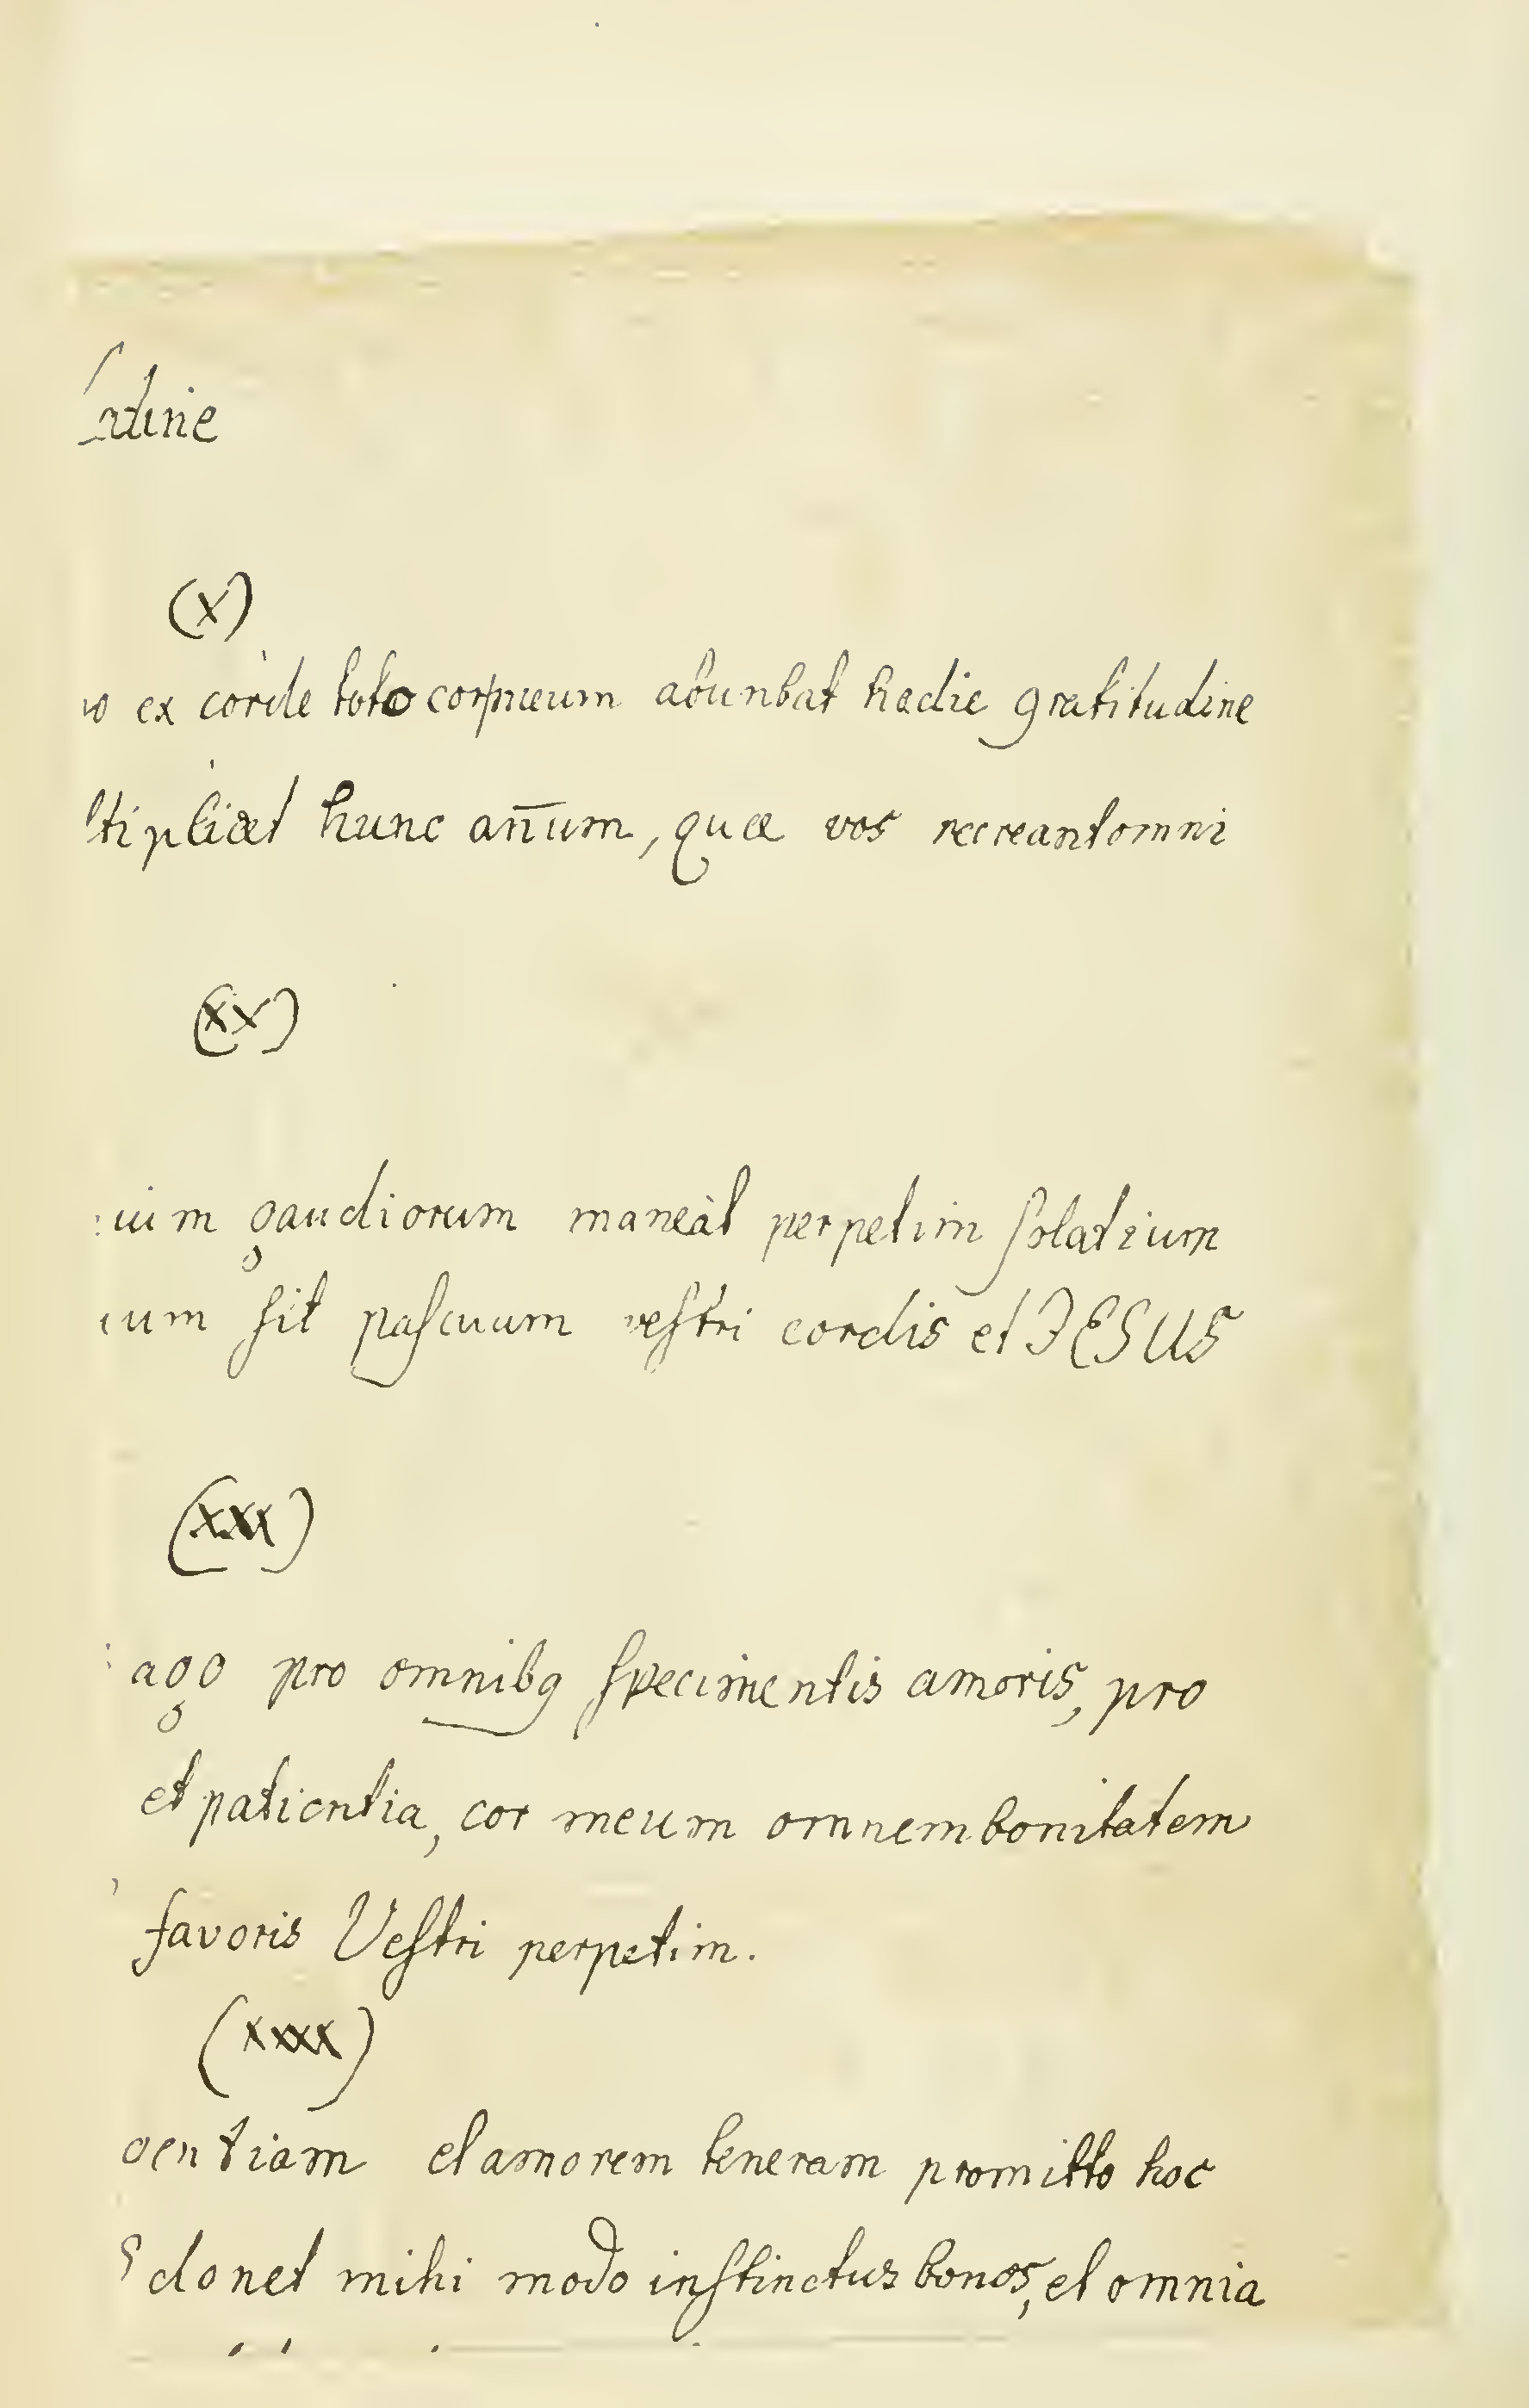 Latine
(X)
ex corde toto corpneum abunbat hedie gratitudine
ltipliæt hunc an̄um, quæ vos recreantomni
(XX)
gaudiorum maneàt perpetim ſolatium
ſit paſcuum veſtri cordis et JESUS
(XXX)
ago pro omnibq ſpecimentis amoris, pro
et patientia, cor meum omnem bonitatem
favoris Veſtri perpetim.
(XXXX)
et amorem teneram promitto hoc
donet mihi modo inſtinctus bonos, et omnia